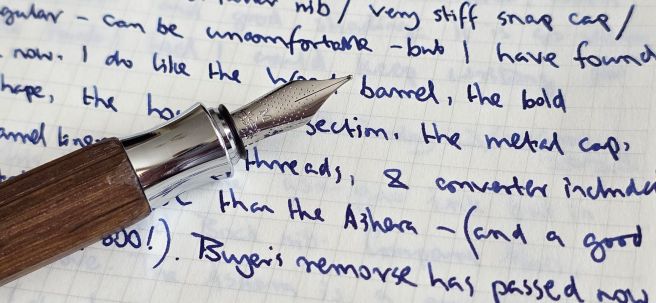 nib / very stiff snap cap /
gular - can be uncomfortable - but I have found
now. I do like the barrel, the bold
hape, the section. the metal cap,
threads, & converter include
than the Ashera - (and a good
800!). Buyer's remorse has passed now